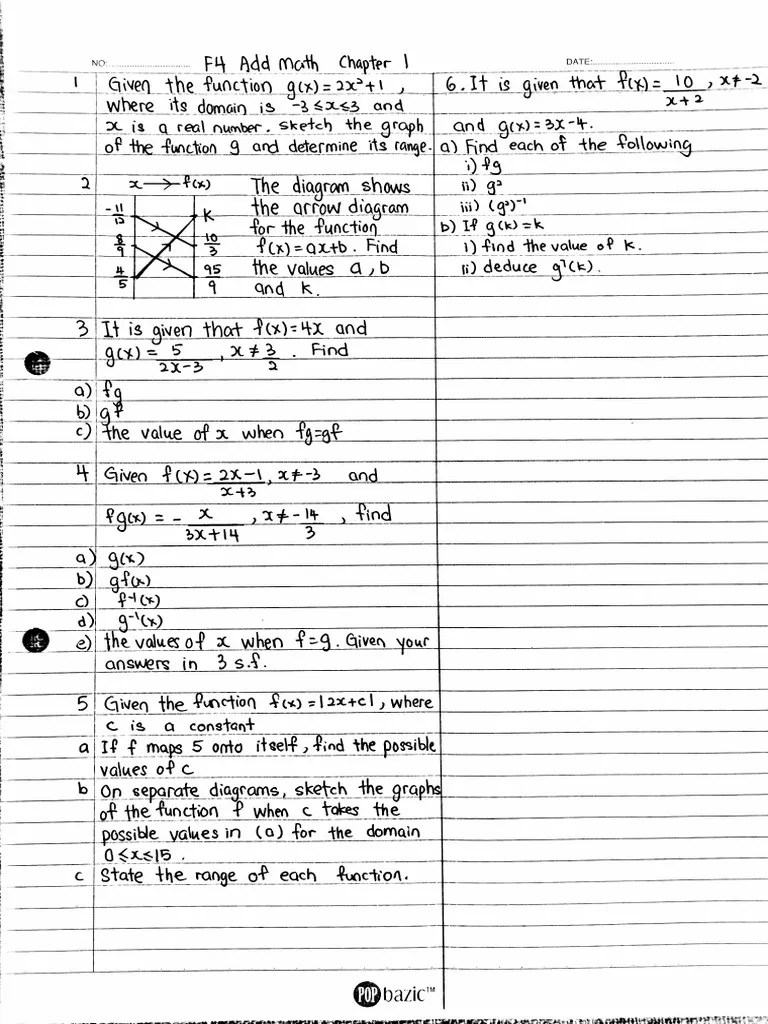 NO:
F4 Add Math Chapter 1
DATE:
1 Given the function g(x)=2x²+1,
where its domain is -3≤x≤3 and
x is a real number. sketch the graph
of the function g and determine its range.
2 x → f(x) The diagram shows
-11/12 K the arrow diagram
for the function
8/9 10/3 f(x)=ax+b. Find
4/5 95/9 the values a, b
and k.
3 It is given that f(x)=4x and
g(x)= 5/(2x-3), x≠3/2. Find
a) fg
b) gf
c) the value of x when fg=gf
4 Given f(x)=(2x-1)/(x+3), x≠-3 and
fg(x) = - x/(3x+14), x≠-14/3, find
a) g(x)
b) gf(x)
c) f⁻¹(x)
d) g⁻¹(x)
e) the values of x when f=g. Given your
answers in 3 s.f.
5 Given the function f(x)=|2x+c|, where
c is a constant
a If f maps 5 onto itself, find the possible
values of c
b On separate diagrams, sketch the graphs
of the function f when c takes the
possible values in (a) for the domain
0≤x≤15.
c State the range of each function.
6. It is given that f(x)= 10/(x+2), x≠-2
and g(x)=3x-4.
a) Find each of the following
i) fg
ii) g²
iii) (g²)⁻¹
b) If g(k)=k
i) find the value of k.
ii) deduce g⁷(k).
POP bazic™